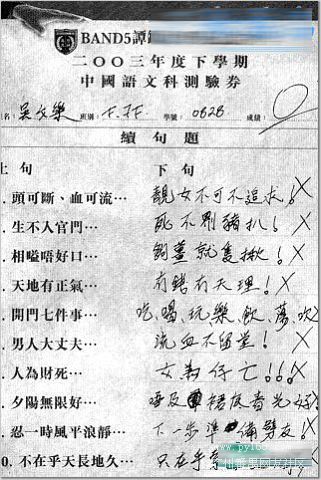 BAND5譚
二○○三年度下學期
中國語文科測驗券
名: 吳文樂 班別: F. 學號: 0626 成績: 0
續句題
上句 下句
. 頭可斷、血可流⋯ 靚女不可不追求! X
. 生不入官門⋯ 死不劏豬扒! X
. 相嗌唔好口⋯ 就隻揪! X
. 天地有正氣⋯ 有錢有天理! X
. 開門七件事⋯ 吃、喝、玩、樂、飲、蕩、吹 X
. 男人大丈夫⋯ 流血不留堂! X
. 人為財死⋯ 女為仔亡!!! X
. 夕陽無限好⋯ 唔及 着光好 X
. 忍一時風平浪靜⋯ 下一步準備劈友! X
0. 不在乎天長地久⋯ 只在乎
www.py168